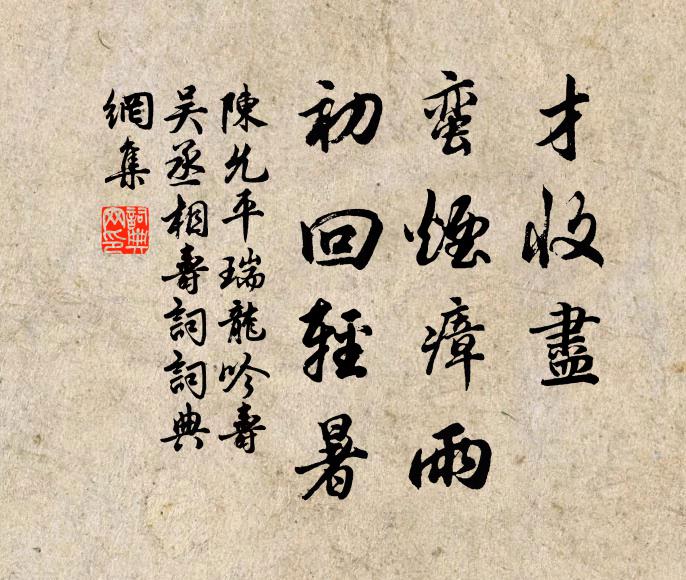 才收盡
蛮煙瘴雨
初回輕暑
陳允平瑞龍吟壽
吴丞相壽詞詞典
網集
詞典
网印